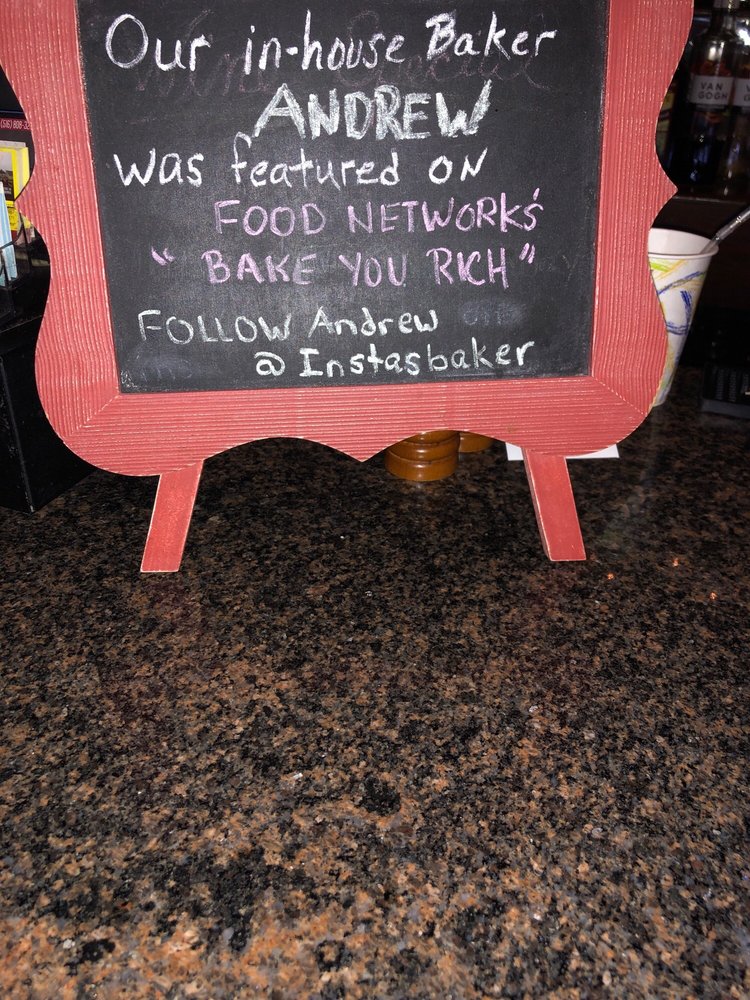 Our in-house Baker
ANDREW
was featured ON
FOOD NETWORK'S
"BAKE YOU RICH"
FOLLOW Andrew
@Instasbaker
VAN
GOGH